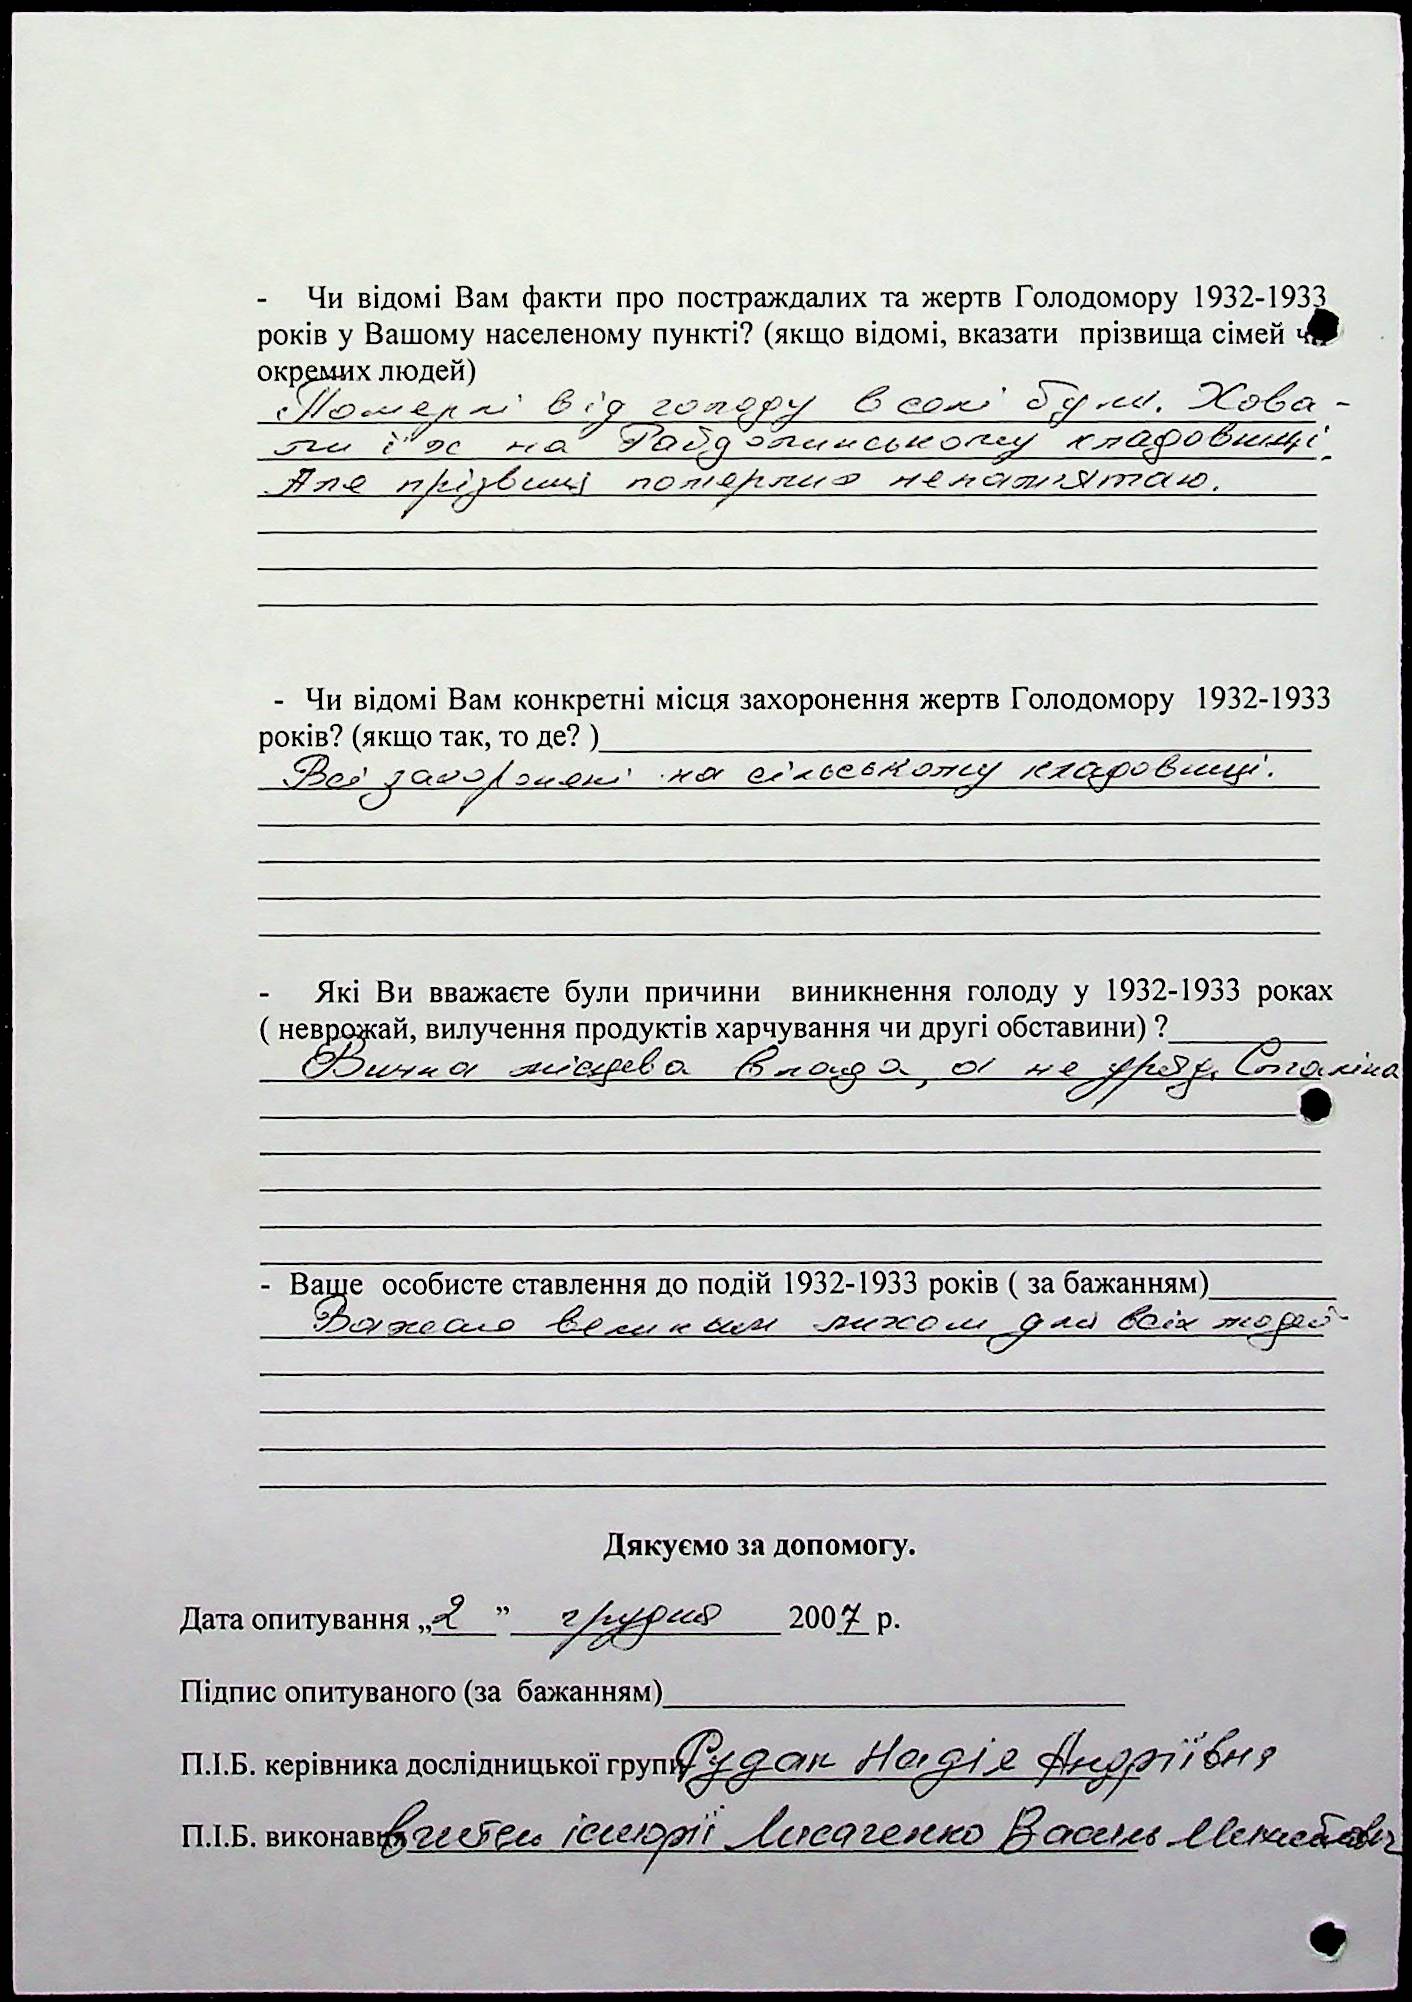 - Чи відомі Вам факти про постраждалих та жертв Голодомору 1932-1933
років у Вашому населеному пункті? (якщо відомі, вказати прізвища сімей чи
окремих людей)
Померлі від голоду в селі були. Хова-
ли їх на Райдолинському кладовищі.
Але прізвищ померлих непам'ятаю.
- Чи відомі Вам конкретні місця захоронення жертв Голодомору 1932-1933
років? (якщо так, то де? )
Всі захоронені на сільському кладовищі.
- Які Ви вважаєте були причини виникнення голоду у 1932-1933 роках
( неврожай, вилучення продуктів харчування чи другі обставини) ?
Винна місцева влада, а не уряд Сталіна
- Ваше особисте ставлення до подій 1932-1933 років ( за бажанням)
Важаю великим лихом для всіх людей
Дякуємо за допомогу.
Дата опитування „2” грудня 2007 р.
Підпис опитуваного (за бажанням)
П.І.Б. керівника дослідницької групи Рудак Надія Андріївна
П.І.Б. виконавця вчитель історії Лисаченко Василь